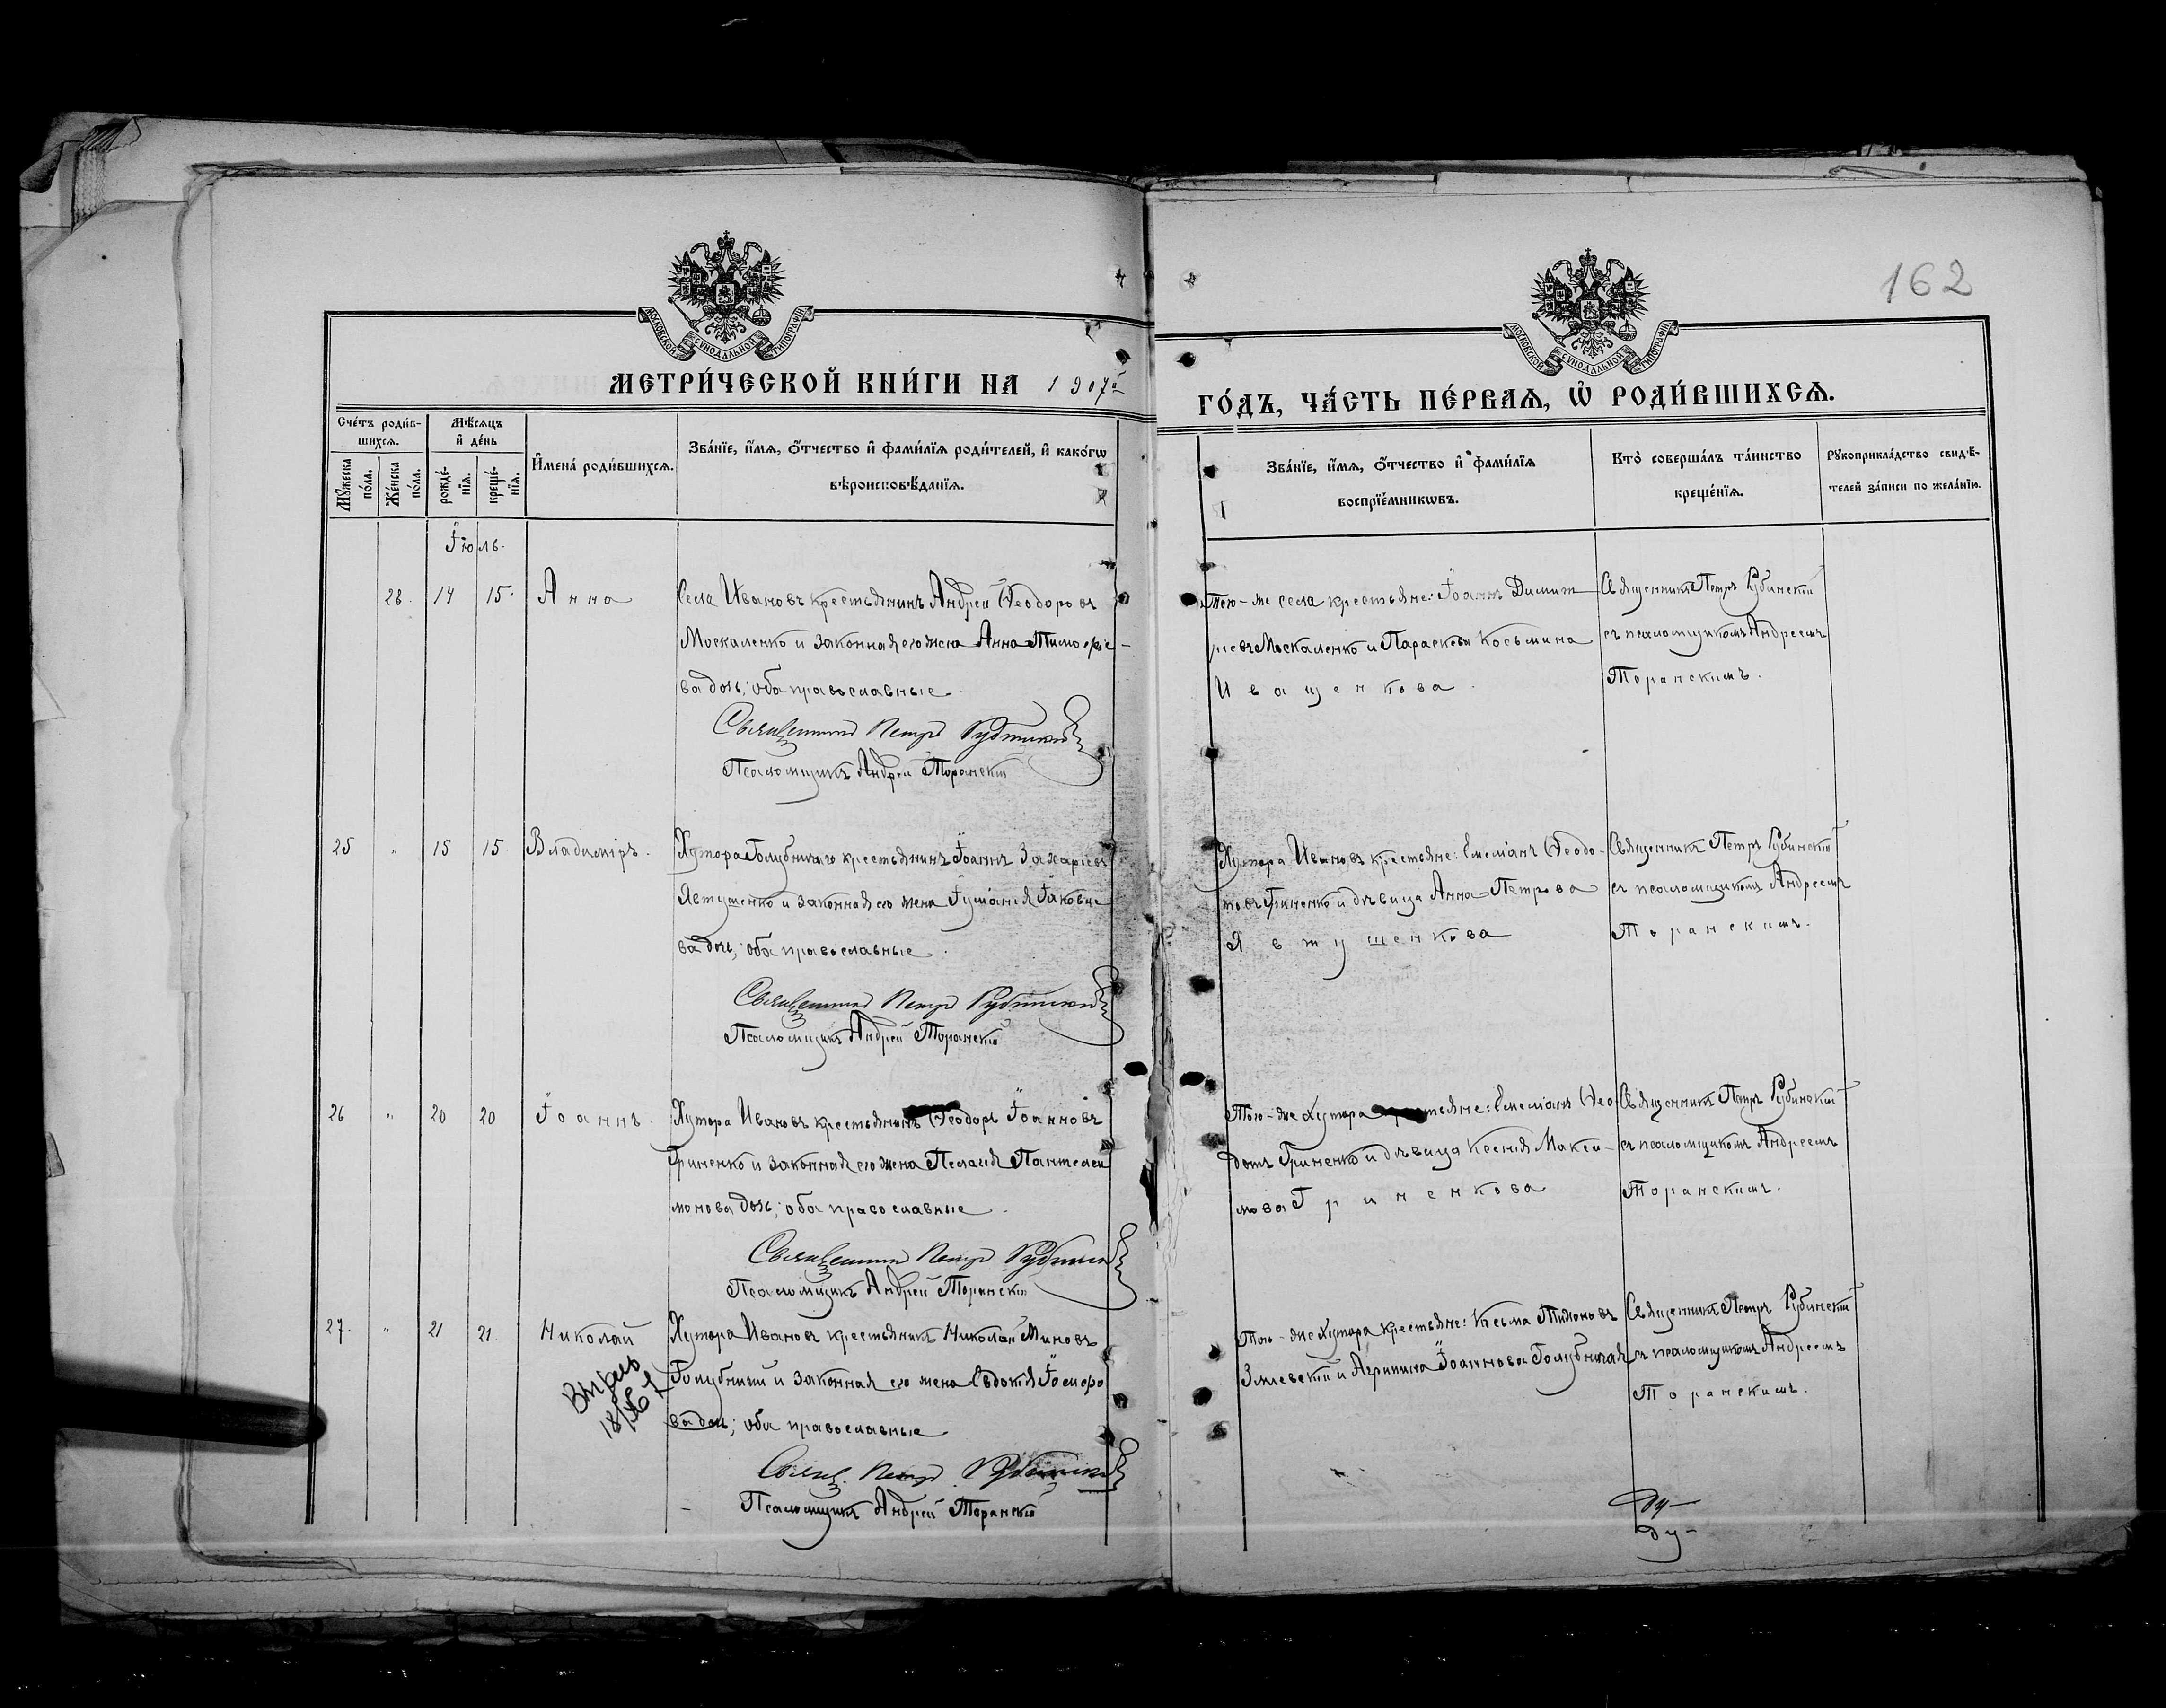 162
МОСКОВСКОЙ СѴНОДАЛЬНОЙ ТИПОГРАФІИ
МОСКОВСКОЙ СѴНОДАЛЬНОЙ ТИПОГРАФІИ
МЕТРИ́ЧЕСКОЙ КНИ́ГИ НА 1907й
ГО́ДЪ, ЧА́СТЬ ПЕ́РВАЯ, Ѡ҆ РОДИ́ВШИХСЯ.
Сче́тъ роди́в-
шихся.
Мѣ́сяцъ
и҆ де́нь
Му́жеска по́ла.
Же́нска по́ла.
рожде́-
нїя.
креще́-
нїя.
И҆мена̀ роди́вшихся.
Зва́нїе, и҆́мя, ѻ҆́тчество и҆ фами́лїя роди́телей, и҆ како́гѡ
вѣроисповѣ́данїя.
Зва́нїе, и҆́мя, ѻ҆́тчество и҆ фами́лїя
воспрїе́мникѡвъ.
Кто̀ соверша́лъ та́инство
креще́нїя.
Рꙋкоприкла́дство свидѣ́-
телей за́писи по жела́нїю.
Іюль.
28. 14 15. Анна
Села Ивановъ крестьянинъ Андрей Ѳеодоровъ
Москаленко и законная его жена Анна Тимоѳее-
ва дочь; оба православные.
Священникъ Петръ Рубинскій
Псаломщикъ Андрей Торанскій
Того-же села крестьяне: Іоаннъ Димит
ріевъ Москаленко и Параскева Косьмина
Иващенкова.
Священникъ Петръ Рубинскій
съ псаломщикомъ Андреемъ
Торанскимъ.
25 " 15 15. Владиміръ.
Хутора Голубничаго крестьянинъ Іоаннъ Захаріевъ
Явтушенко и законная его жена Іуліанія Іаковле
ва дочь; оба православные.
Священникъ Петръ Рубинскій
Псаломщикъ Андрей Торанскій
Хутора Ивановъ крестьяне: Емеліанъ Ѳеодо-
товъ Гриненко и дѣвица Анна Петрова
Явтушенкова
Священникъ Петръ Рубинскій
съ псаломщикомъ Андреемъ
Торанскимъ.
26 " 20 20 Іоаннъ.
Хутора Ивановъ крестьянинъ Ѳеодоръ Іоанновъ
Гриненко и законная его жена Пелагія Пантелеи
монова дочь; оба православные.
Священникъ Петръ Рубинскій
Псаломщикъ Андрей Торанскій
Того-же хутора крестьяне: Емеліанъ Ѳео
дотъ Гриненко и дѣвица Ксенія Макси-
мова Гриненкова
Священникъ Петръ Рубинскій
съ псаломщикомъ Андреемъ
Торанскимъ.
27. " 21 21. Николай
Хутора Ивановъ крестьянинъ Николай Миновъ
Голубничій и законная его жена Евдокія
ва дочь; оба православные.
Свящ. Петръ Рубинскій
Псаломщикъ Андрей Торанскій
Того-же хутора крестьяне: Косьма Тихоновъ
Змievскій и Агрипина Іоаннова Голубничая
Священникъ Петръ Рубинскій
съ псаломщикомъ Андреемъ
Торанскимъ.